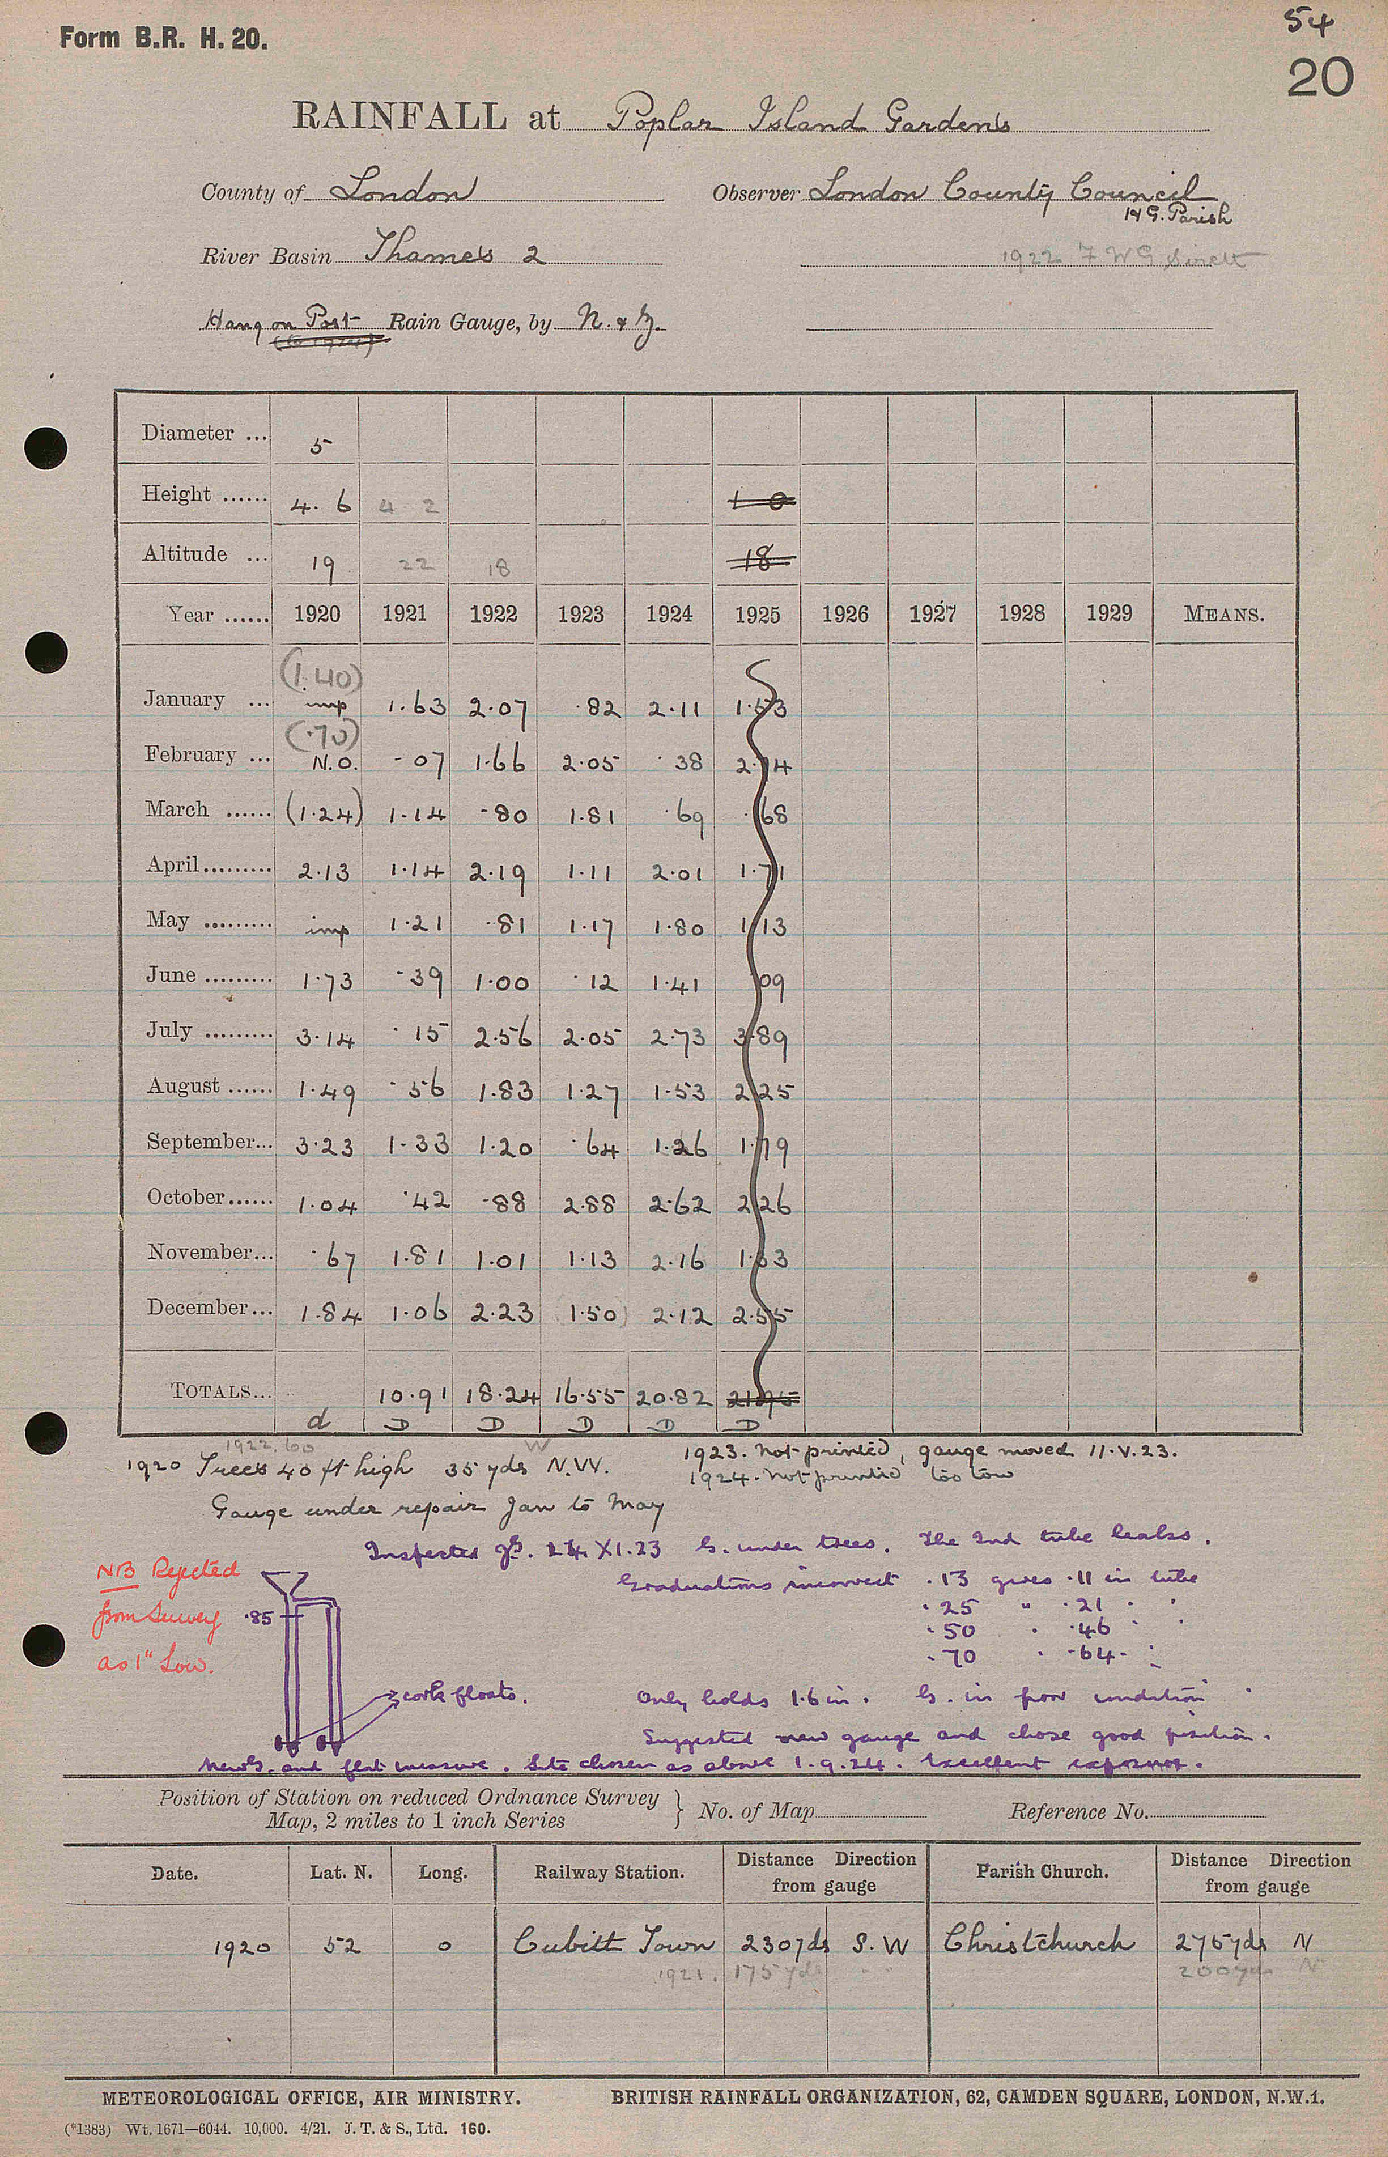 54
Form B.R. H. 20.
20
RAINFALL at Poplar Island Gardens
County of London Observer London County Council
H G. Parish
River Basin Thames 2 1922 F W G
Hang on Post Rain Gauge, by N. & Z.
(to 1914)
Diameter ... 5
Height ...... 4. 6 4 2 1 0
Altitude ... 19 22 18 18
Year ...... 1920 1921 1922 1923 1924 1925 1926 1927 1928 1929 MEANS.
(1.40)
January ... imp 1.63 2.07 .82 2.11 1.53
(.70)
February ... N.O. .07 1.66 2.05 .38 2.14
March ...... (1.24) 1.14 .80 1.81 .69 .68
April......... 2.13 1.14 2.19 1.11 2.01 1.71
May ......... imp 1.21 .81 1.17 1.80 1.13
June ......... 1.73 .39 1.00 .12 1.41 .09
July ......... 3.14 .15 2.56 2.05 2.73 3.89
August ...... 1.49 .56 1.83 1.27 1.53 2.25
September... 3.23 1.33 1.20 .64 1.26 1.79
October...... 1.04 .42 .88 2.88 2.62 2.26
November... .67 1.81 1.01 1.13 2.16 1.63
December... 1.84 1.06 2.23 (1.50) 2.12 2.55
TOTALS... 10.91 18.24 16.55 20.82
d D D D D D
1922. 60 W
1920 Trees 40 ft high 35 yds N.W.
1923. Not printed, gauge moved 11.V.23.
1924. Not printed too low
Gauge under repair Jan to May
Inspected 24.XI.23 G. under trees. The 2nd tube leaks.
NB Rejected
from Survey
as 1" Low.
.85
Graduations incorrect .13 gives .11 in tube
.25 " .21 . .
.50 . .46 . .
.70 . .64 . .
cork floats.
Only holds 1.6 in. G. in poor condition.
Suggested new gauge and chose good position.
New G. and flat measure. Site chosen as above 1.9.24. Excellent exposure.
Position of Station on reduced Ordnance Survey
Map, 2 miles to 1 inch Series } No. of Map Reference No.
Date. Lat. N. Long. Railway Station. Distance Direction from gauge Parish Church. Distance Direction from gauge
1920 52 0 Cubitt Town 230yds S.W Christchurch 275yds N
1921. 175 yds " " 200yds N
METEOROLOGICAL OFFICE, AIR MINISTRY. BRITISH RAINFALL ORGANIZATION, 62, CAMDEN SQUARE, LONDON, N.W.1.
(*1383) Wt. 1671—6044. 10,000. 4/21. J. T. & S., Ltd. 160.